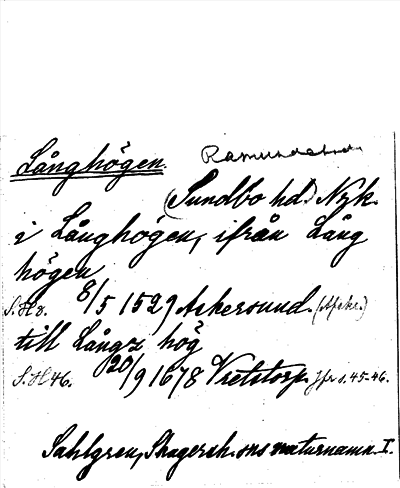 Långhögen. Ramundeboda
(Sundbo hd.) Nyk.
i Långhögen, ifrån Lång
högen
S. H 8. 8/5 1529 Askersund. (Afskr.)
till Långz hög
S. H 46. 20/9 1678 Vretstorp. Jfr s. 45-46.
Sahlgren, Skagersh. sns naturnamn I.